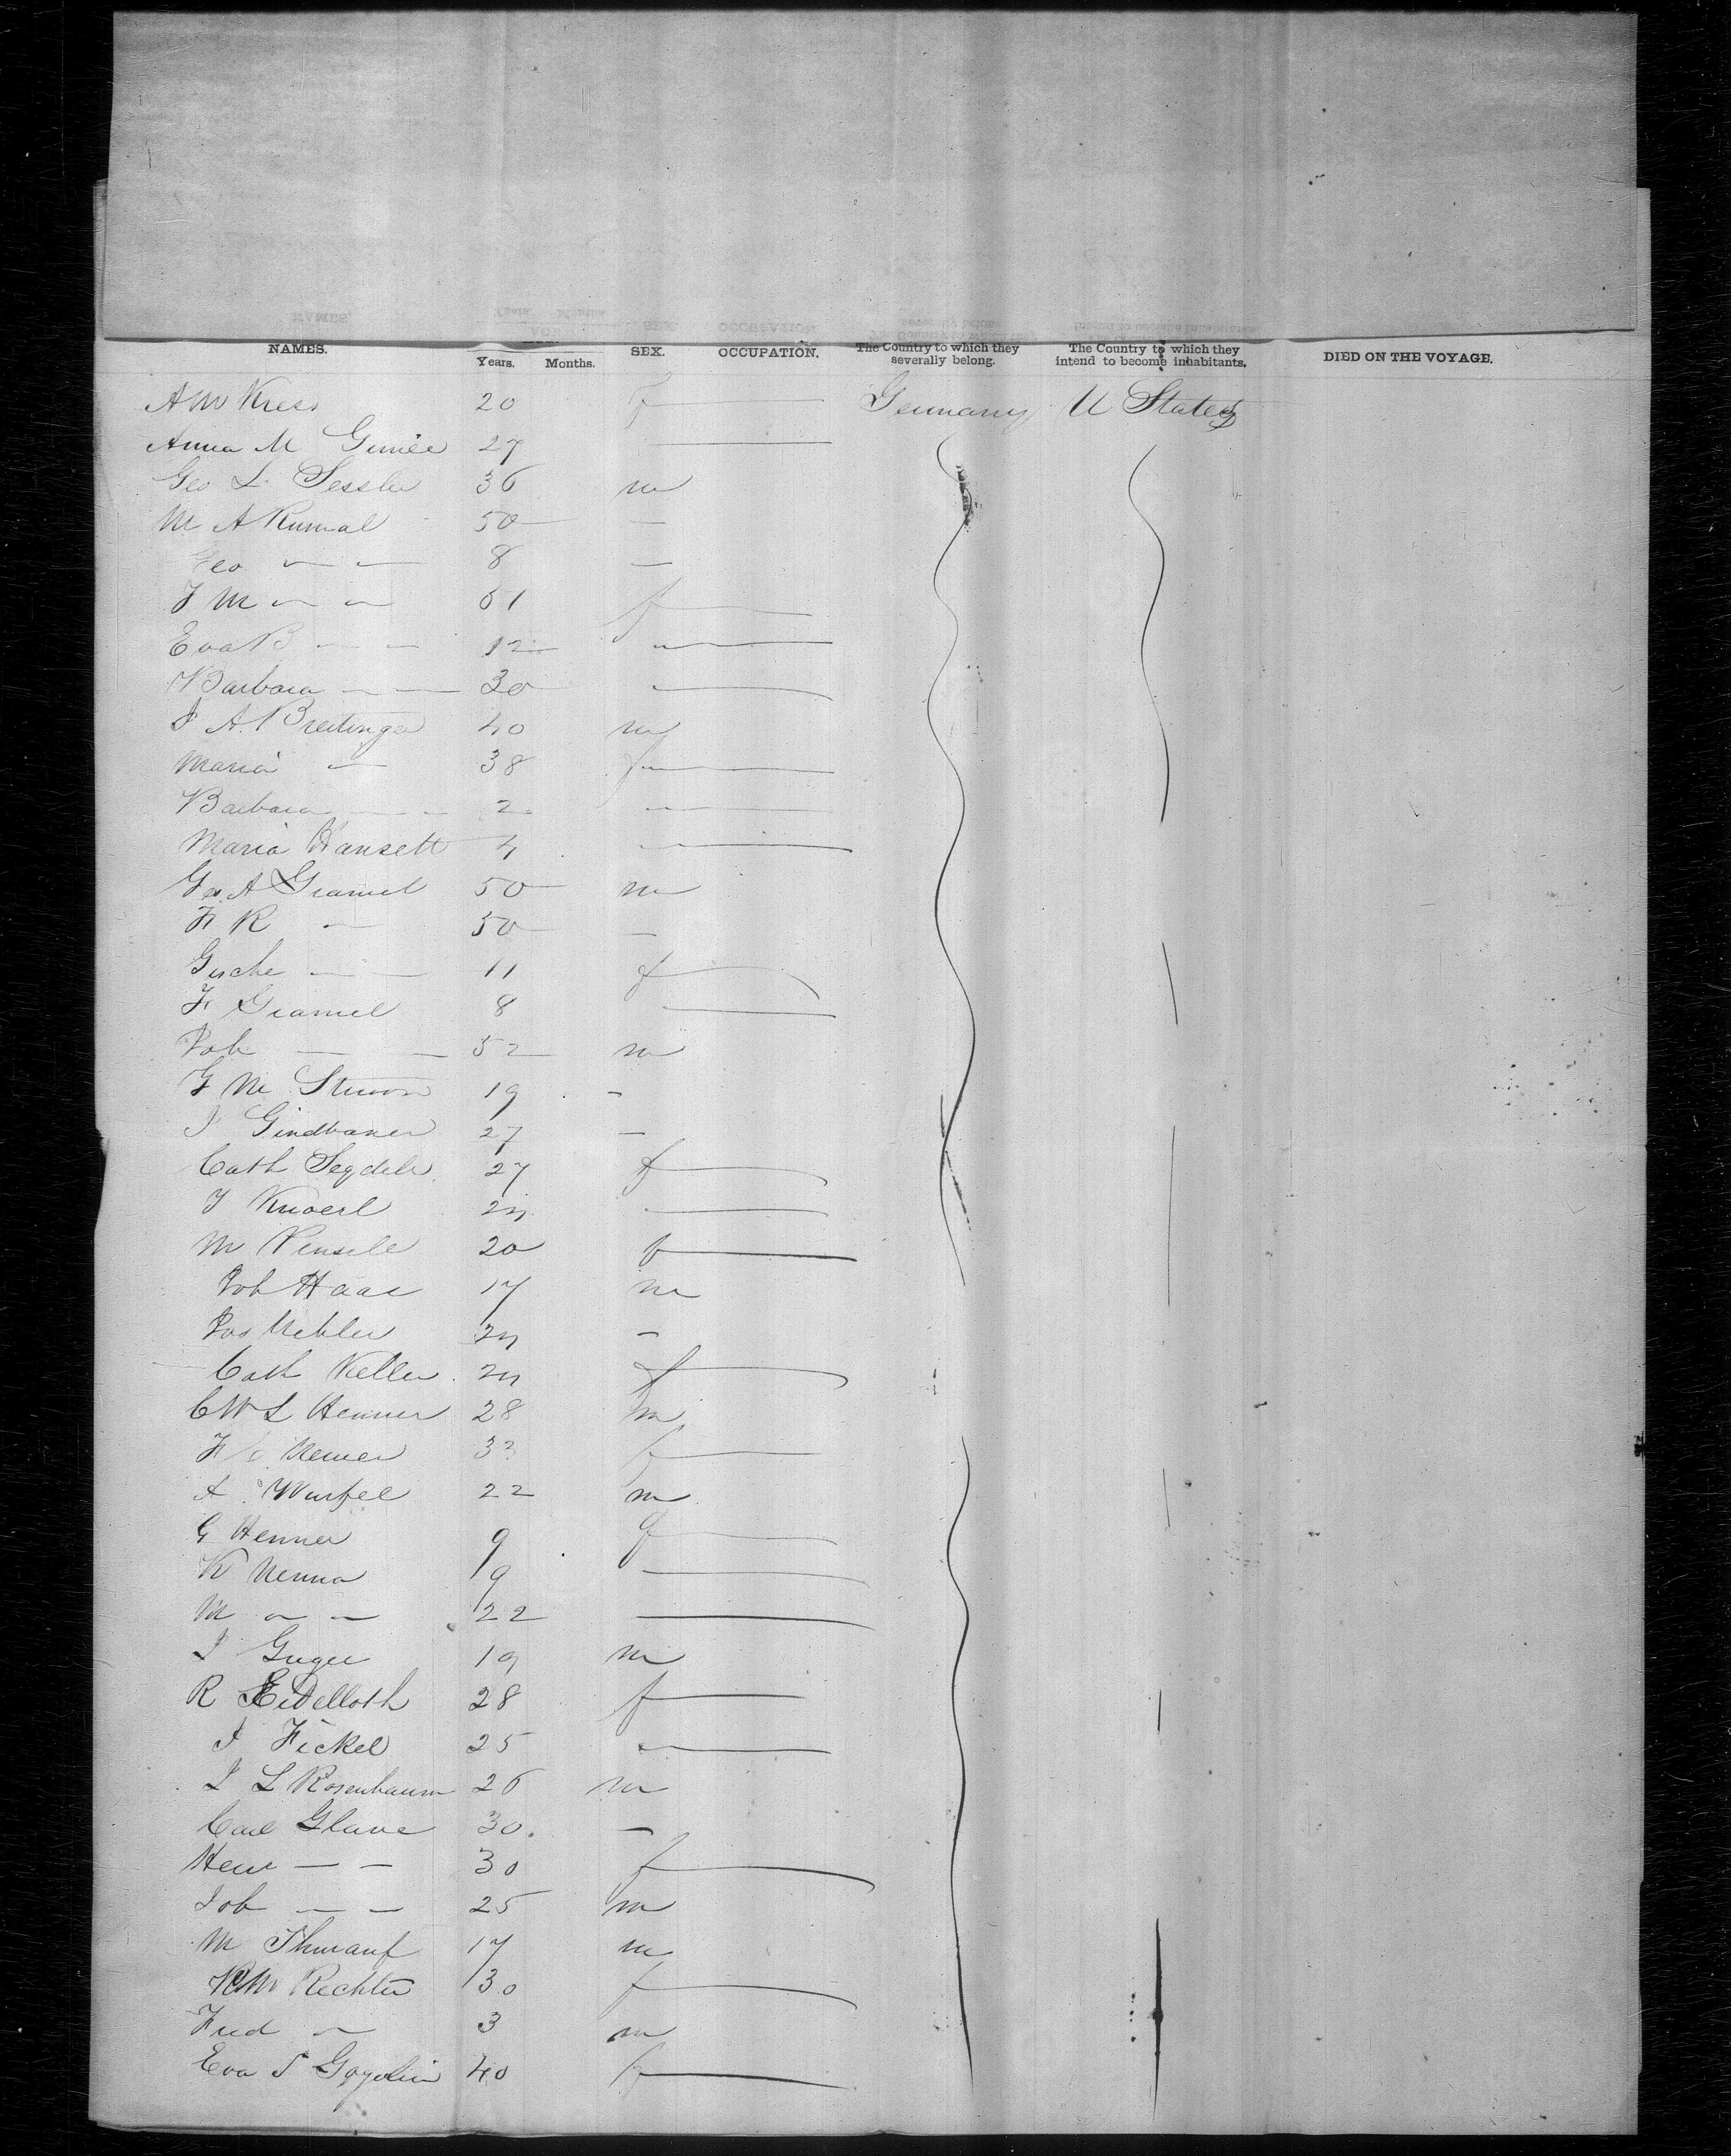 NAMES. Years. Months. SEX. OCCUPATION. The Country to which they severally belong. The Country to which they intend to become inhabitants. DIED ON THE VOYAGE.
A M Kress 20 f Germany U States
Anna M 27
Geo L. Sessler 36 m
M A Kumal 50 —
Geo — — 8 —
J M — — 61 f
Eva B — — 12
Barbara — — 30
J A. Breitinger 40 m
Maria — 38 f
Barbara — — 2
Maria Hansett 4
Geo A Gramel 50 m
F R — 50 —
— — 11 f
F Gramel 8
Joh — — 52 m
G M 19 -
J Gindbauer 27 —
Cath 27 f
J Knoerl
M 20 f
Joh Haas 17 m
Jos —
Cath Keller f
C W L Henner 28 m
F 33 f
A Wurfel 22 m
G Henner 9 f
K 19
M — — 22
J 19 m
R Eidelloth 28 f
J Fickel 25
J L Rosenbaum 26 m
Carl Glave 30. —
Henr — — 30 f
Joh — — 25 m
M 17 m
K M Rechter 30 f
Fred — 3 m
Eva S Gogolin 40 f